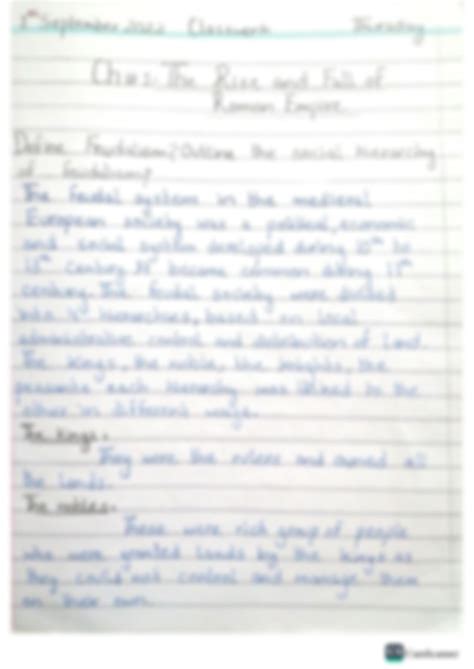 1st September 2022 Classwork Thursday
Ch#1: The Rise and Fall of
Roman Empire
Define Feudalism? Outline the social hierarchy
of feudalism?
The feudal system in the medieval
European society was a political, economic
and social system developed during 10th to
13th century. It became common during 11th
century. The feudal society were divided
into 4 hierarchies, based on local
administrative control and distribution of land.
The kings, the noble, the knights, the
peasants each hierarchy was linked to the
other in different ways.
The kings:
They were the rulers and owned all
the lands.
The nobles:
These were rich group of people
who were granted lands by the kings as
they could not control and manage them
on their own.
CamScanner